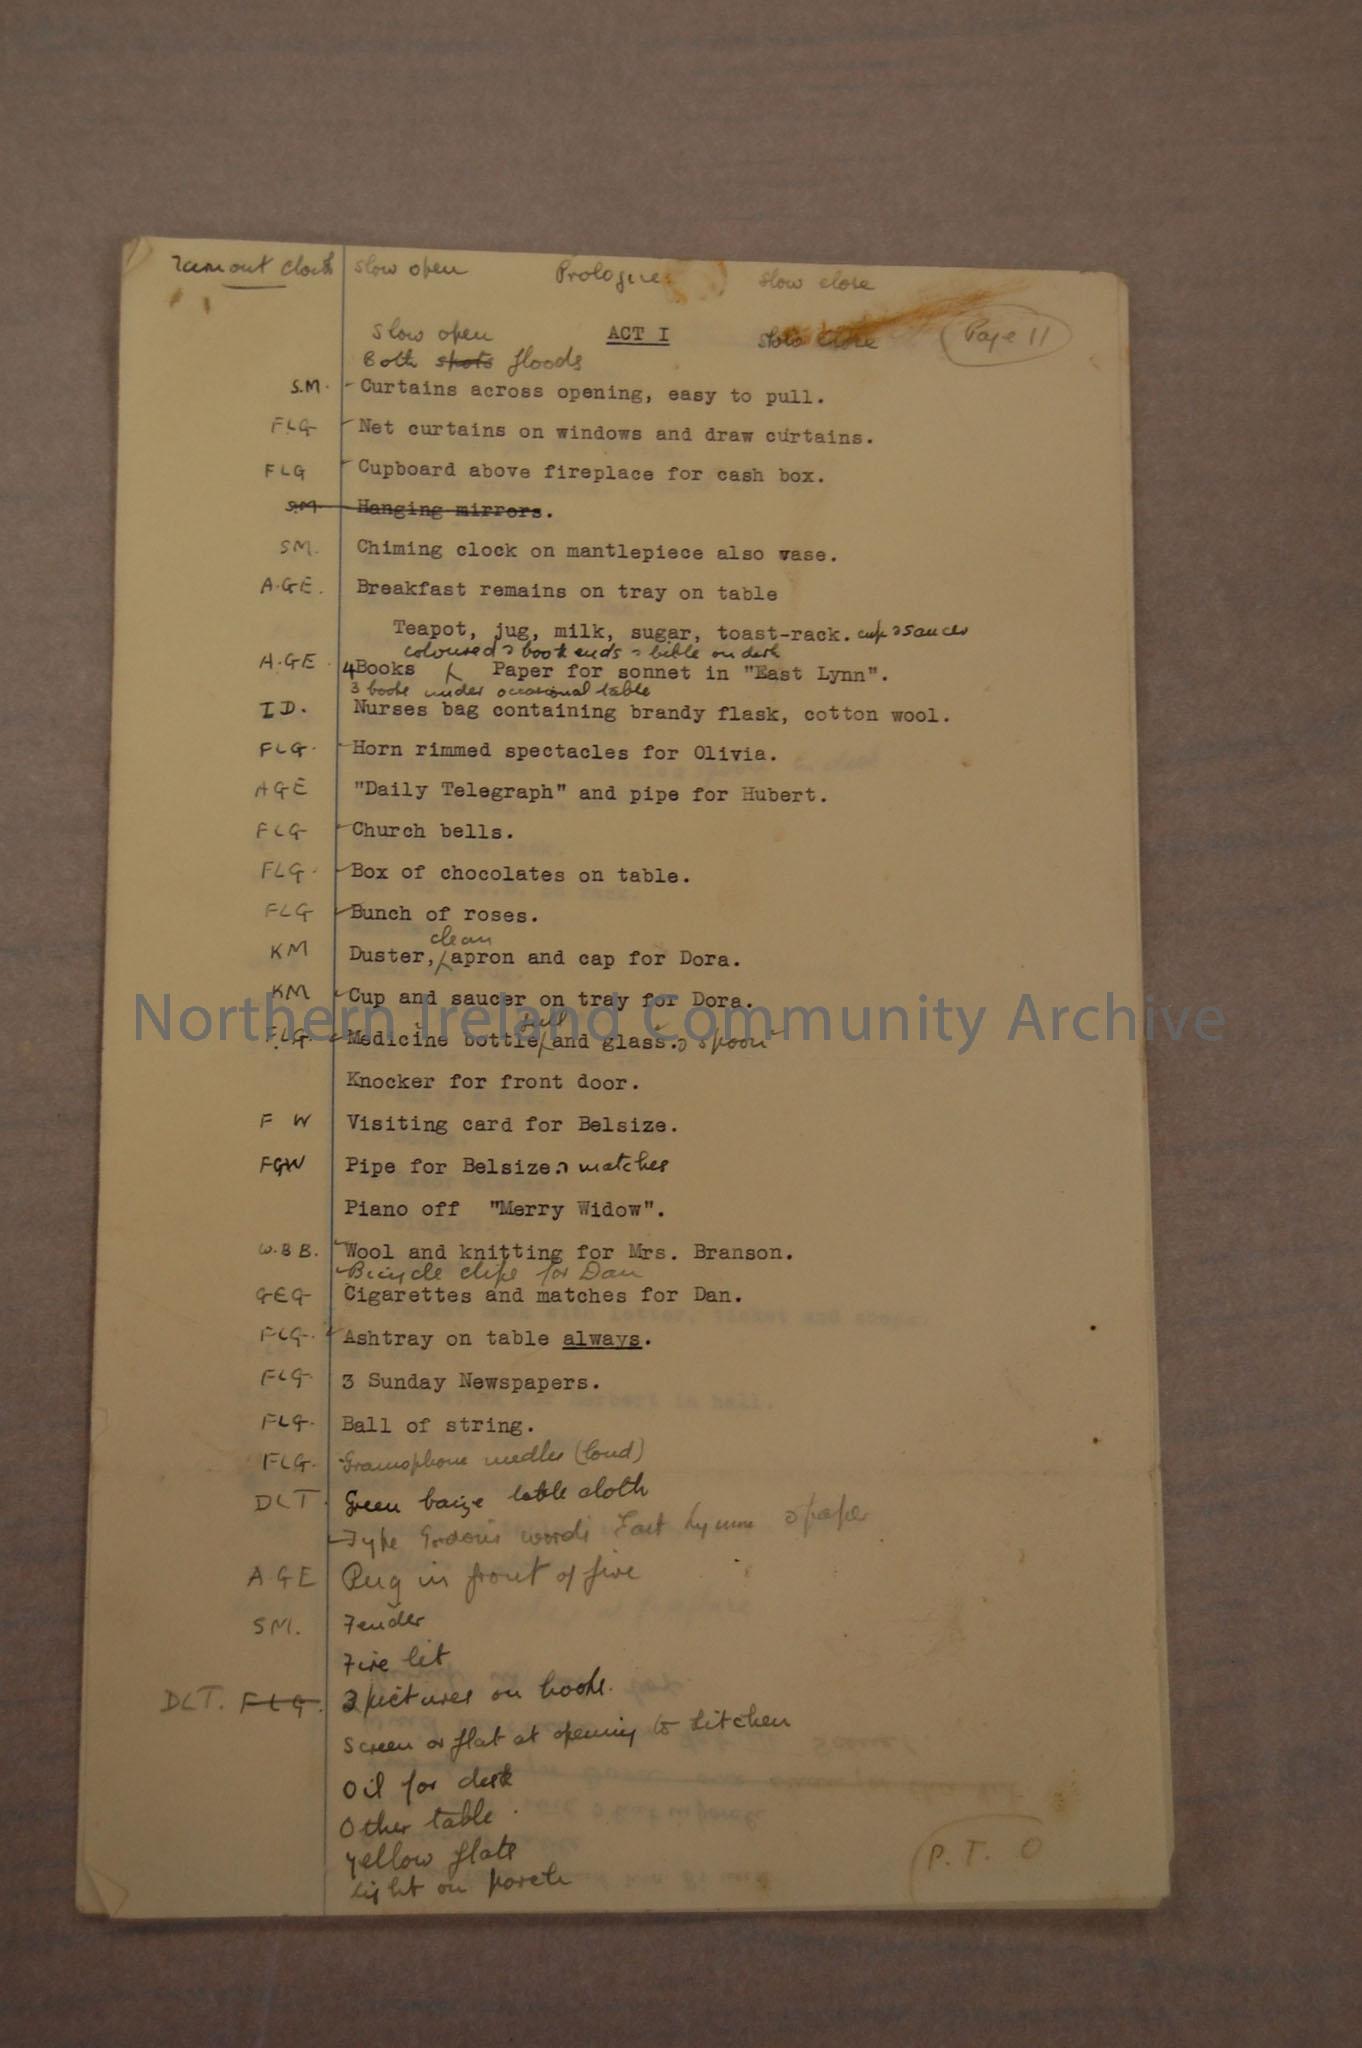 Turn out clock slow open Prologue slow close
Slow open ACT I slow close Page 11
Both spots floods
S.M. Curtains across opening, easy to pull.
FLG Net curtains on windows and draw curtains.
FLG Cupboard above fireplace for cash box.
S.M. Hanging mirrors.
SM. Chiming clock on mantlepiece also vase.
A.GE. Breakfast remains on tray on table
Teapot, jug, milk, sugar, toast-rack. cup & saucer
coloured & book ends & bible on desk
A.GE. 4 Books Paper for sonnet in "East Lynn".
3 books under occasional table
I D. Nurses bag containing brandy flask, cotton wool.
FLG. Horn rimmed spectacles for Olivia.
AGE "Daily Telegraph" and pipe for Hubert.
FLG Church bells.
FLG. Box of chocolates on table.
FLG Bunch of roses.
clean
KM Duster, apron and cap for Dora.
KM Cup and saucer on tray for Dora.
full
FLG. Medicine bottle and glass. & spoon
Knocker for front door.
F W Visiting card for Belsize.
FGW Pipe for Belsize. & matches
Piano off "Merry Widow".
W.B B. Wool and knitting for Mrs. Branson.
Bicycle clips for Dan
GEG Cigarettes and matches for Dan.
FLG. Ashtray on table always.
FLG. 3 Sunday Newspapers.
FLG. Ball of string.
FLG. Gramophone needles (loud)
DLT. Green baize table cloth
Type Gordon's words East Lynne & paper
A.GE Rug in front of fire
SM. Fender
Fire lit
DLT. FLG. pictures on hooks.
Screen or flat at opening to kitchen
Oil for desk
Other table
Yellow flats
Light on porch
P.T. O
Northern Ireland Community Archive